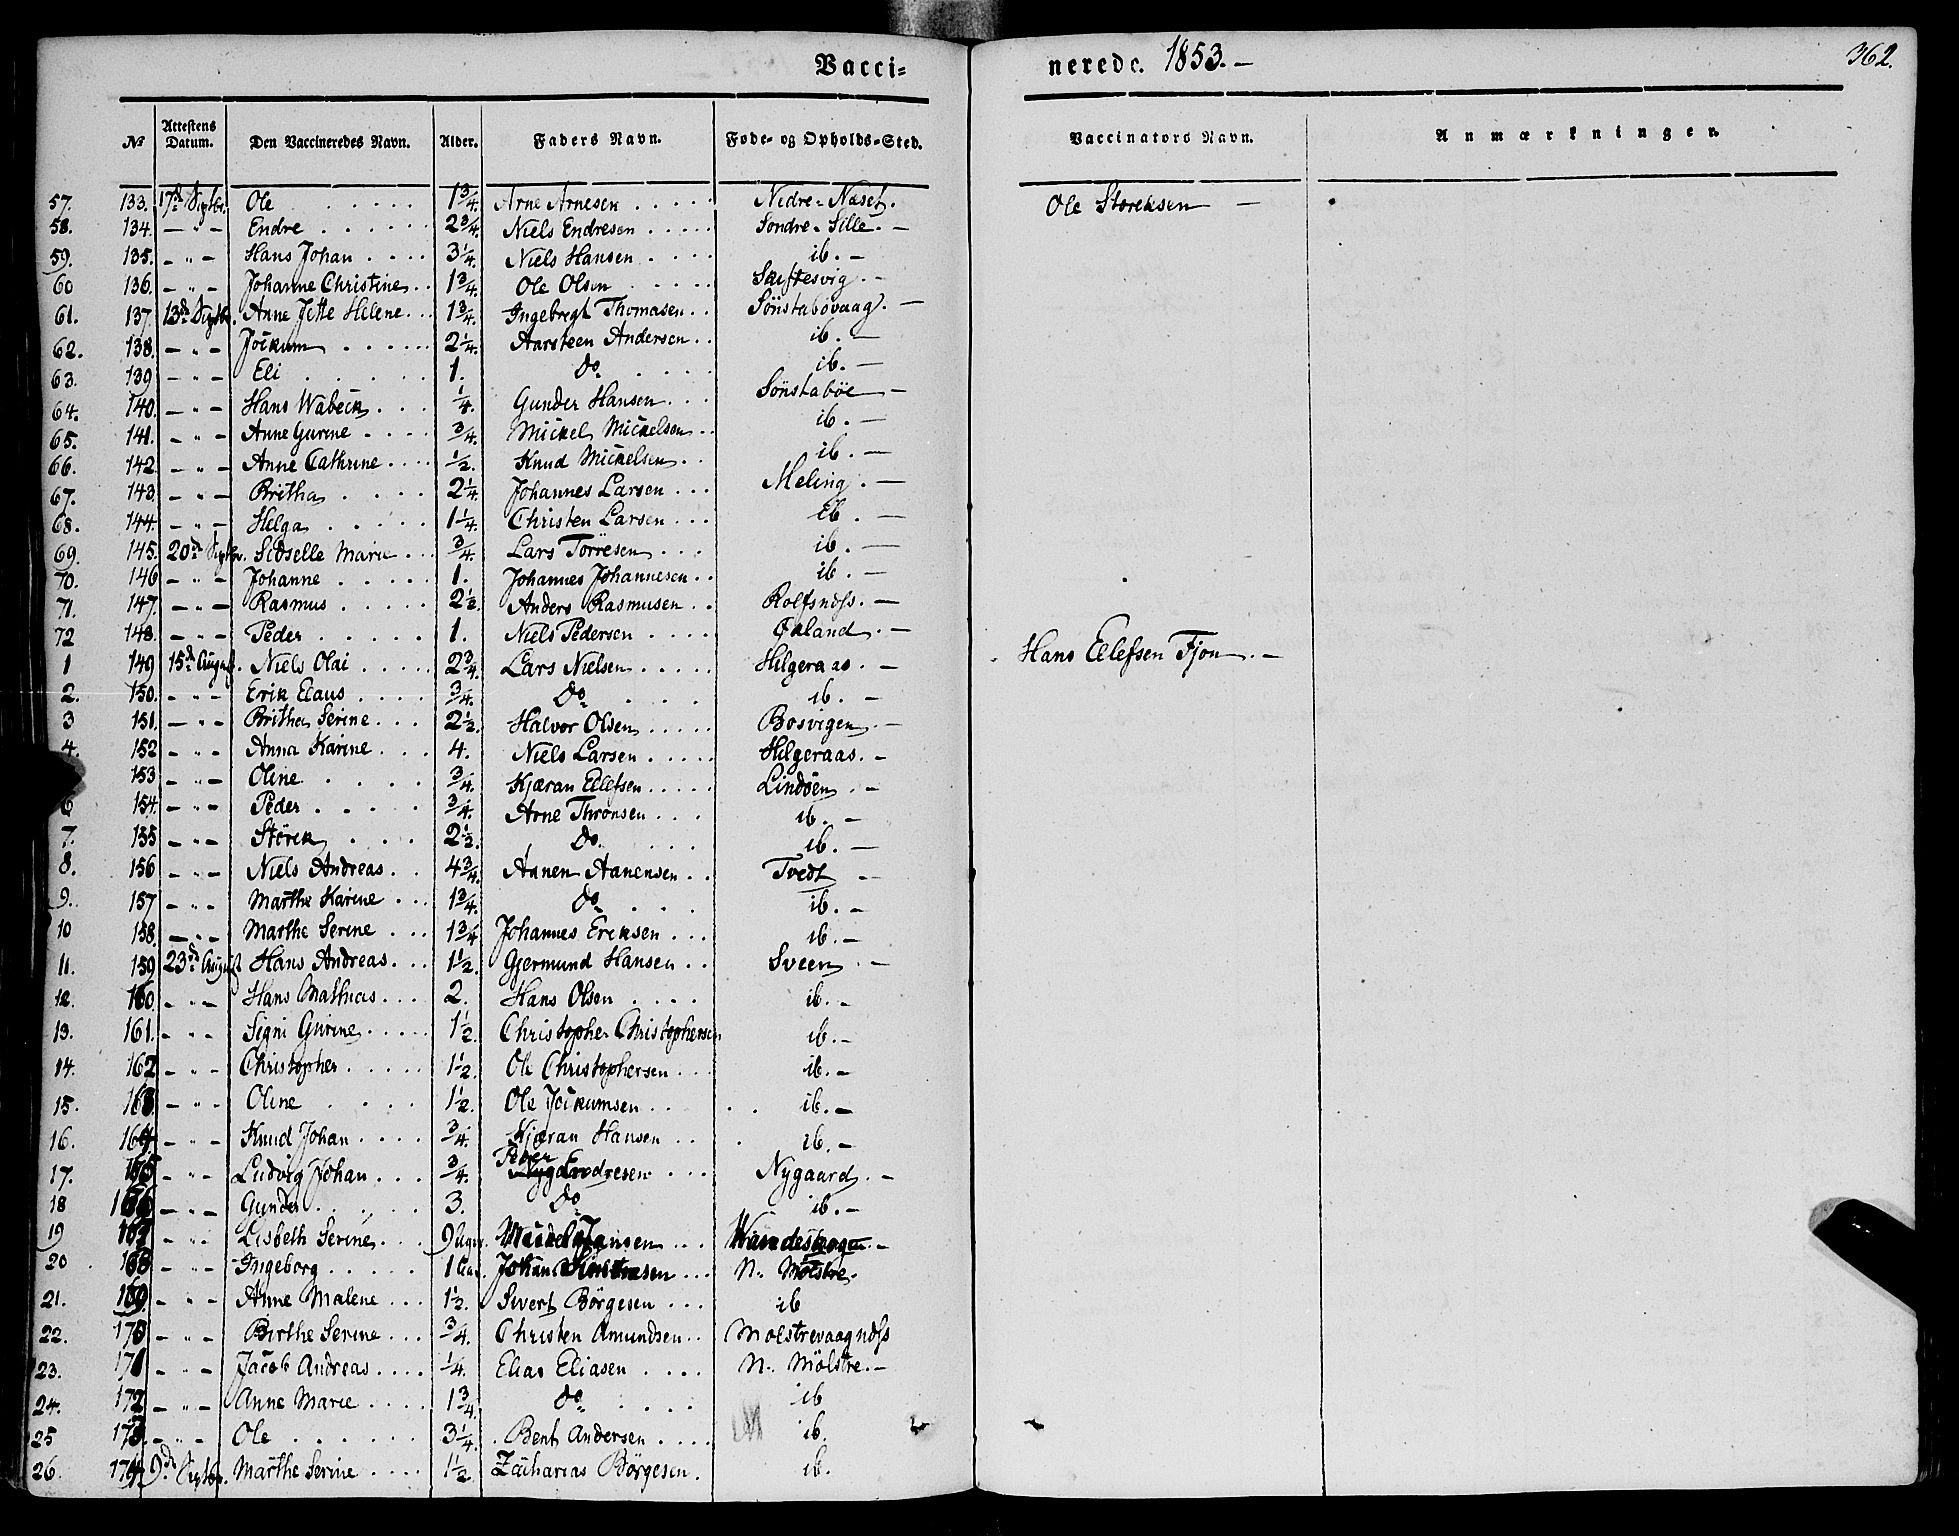 Vacci- nerede. 1853. —
362.
№ Attestens Datum. Den Vaccineredes Navn. Alder. Faders Navn. Føde- og Opholds-Sted. Vaccinators Navn. Anmærkninger.
57. 133. 17d Septbr. Ole . . . . . 1¾. Arne Arnesen . . . . . Nedre-Naset. Ole Storeksen —
58. 134. — " — Endre . . . . . . 2¾. Niels Endresen . . . . . Søndre-Sille. —
59. 135. — " — Hans Johan . . . . 3¼. Niels Hansen . . . . ib. —
60 136. — " — Johanne Christine . . 1¾. Ole Olsen . . . . . Salftesvig. —
61. 137. 13d Septbr. Anne Jette Helene . . . 1¾. Ingebregt Thomasen . . Sönstabövaag. —
62. 138. — " — Jockum . . . . . 2¼. Aarsteen Andersen . . ib. —
63. 139 — " — Eli . . . . . . 1. Do . . . . ib. —
64. 140. — " — Hans Wabeck . . . ¼. Gunder Hansen . . . Sönstaböe —
65. 141. — " — Anne Gurine . . . . ¾. Mickel Mickelsen . . ib. —
66. 142. — " — Anne Cathrine . . . . ½. Knud Mickelsen . . ib. —
67. 143 — " — Britha . . . . 2¼. Johannes Larsen . . . Meling. —
68. 144. — " — Helga . . . . . 1¼. Christen Larsen . . . ib. —
69. 145. 20d Septbr. Sidselle Marie . . . ¾. Lars Törresen . . . ib. —
70. 146 — " — Johanne . . . . . 1. Johannes Johannesen . . ib. —
71. 147. — " — Rasmus . . . . . 2½. Anders Rasmusen . . Rolfsnds. —
72 148. — " — Peder . . . . . . 1. Niels Pedersen . . . . Økland. —
1 149 15d August. Niels Olai . . . . . 2¾. Lars Nielsen . . . . . Helgeraas. — Hans Ellefsen Fjon. —
2. 150. — " — Erik Claus . . . . . ¾. Do . . . . ib. —
3 151. — " — Britha Serine . . . 2½. Halvor Olsen . . . . . Bosvigen. —
4. 152 — " — Anna Karine . . . 4. Niels Larsen . . . . . Helgeraas. —
153 — " — Oline . . . . . ¾. Kjæran Ellefsen . . . . . Lindöen. —
6 154. — " — Peder . . . . . ¾. Arne Thronsen . . . ib. —
7. 155 — " — Störck . . . . 2½. Do. . . . ib. —
8. 156 — " — Niels Andreas . . . 4¾. Aanen Aanensen . . Tvedt —
9. 157 — " — Marthe Karine . . . 1¾. Do . . . ib. —
10 158. — " — Marthe Serine . . . 1¾ Johannes Ericksen . . . ib. —
11. 159 23d August Hans Andreas . . . 1½. Gjermund Hansen . . Sveen. —
12. 160 — " — Hans Mathias . . . 2. Hans Olsen . . . . ib. —
13. 161. — " — Signi Gurine . . . . . 1½. Christopher Christophersen ib. —
14. 162 — " — Christopher . . . . . 1½. Ole Christophersen . . . ib. —
15. 163 — " — Oline . . . . 1½. Ole Jockumsen . . . ib. —
16. 164. — " — Knud Johan . . . . ¾. Kjæran Hansen . . . ib. —
17. 165 — " — Ludvig Johan . . . ¾. Peder Endresen . . . Nygaard. —
18 166 — " — Gunder . . . . . 3. Do ib. —
19 167 — " — Lisbeth Serine . . . 9 Uger. Hansen . . .
20 168 — " — Ingeborg . . . . . 1 Aar. Johan . . . N. Mölstre.
21. 169. — " — Anne Malene . . . 1½. Sivert Börgesen . . . ib
22. 170 — " — Birthe Serine . . . ¾. Christen Amundsen . . Molstrevaagnds
23. 171 — " — Jacob Andreas . . . . ¼. Elias Eliasen . . . . N. Mölstre. —
24. 172 — " — Anne Marie . . . . 1¾. Do . . . . ib
25 173. — " — Ole . . . . . . 3¼. Bent Andersen . . . . ib.
26. 174. 9d Septbr. Marthe Serine . . . . 1½. Zacharias Börgesen. ib.